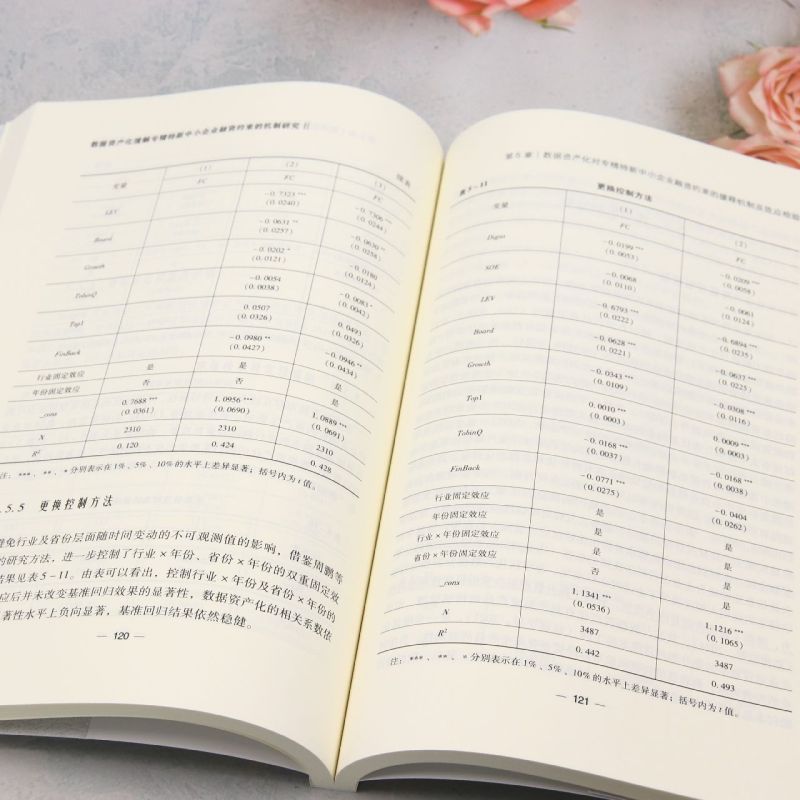 数据资产化缓解专精特新中小企业融资约束的机制研究
续表
变量 （1） （2） （3）
FC FC FC
LEV -0.7323 *** -0.7306 ***
(0.0240) (0.0244)
Board -0.0631 ** -0.0630 **
(0.0257) (0.0258)
Growth -0.0202 * -0.0180
(0.0121) (0.0124)
TobinQ -0.0054 -0.0083 *
(0.0038) (0.0042)
Top1 0.0507 0.0493
(0.0326) (0.0326)
FinBack -0.0980 ** -0.0946 **
(0.0427) (0.0434)
行业固定效应 是 是 是
年份固定效应 否 否 是
_cons 0.7688 *** 1.0956 *** 1.0889 ***
(0.0361) (0.0690) (0.0691)
N 2310 2310 2310
R² 0.120 0.424 0.428
注：***、**、*分别表示在1%、5%、10%的水平上差异显著；括号内为t值。
.5.5 更换控制方法
避免行业及省份层面随时间变动的不可观测值的影响，借鉴周鹏等
的研究方法，进一步控制了行业×年份、省份×年份的双重固定效
结果见表5-11。由表可以看出，控制行业×年份及省份×年份的
应后并未改变基准回归效果的显著性，数据资产化的相关系数依
著性水平上负向显著，基准回归结果依然稳健。
— 120 —
第5章 | 数据资产化对专精特新中小企业融资约束的缓释机制及效应检验
表5-11 更换控制方法
变量 （1） （2）
FC FC
Digas -0.0199 *** -0.0209 ***
(0.0053) (0.0058)
SOE -0.0068 -0.0061
(0.0110) (0.0124)
LEV -0.6793 *** -0.6894 ***
(0.0222) (0.0235)
Board -0.0628 *** -0.0637 ***
(0.0221) (0.0225)
Growth -0.0343 *** -0.0308 ***
(0.0109) (0.0116)
Top1 0.0010 *** 0.0009 ***
(0.0003) (0.0003)
TobinQ -0.0168 *** -0.0168 ***
(0.0037) (0.0038)
FinBack -0.0771 *** -0.0404
(0.0275) (0.0262)
行业固定效应 是 是
年份固定效应 是 是
行业×年份固定效应 是 是
省份×年份固定效应 否 是
_cons 1.1341 *** 1.1216 ***
(0.0536) (0.1065)
N 3487 3487
R² 0.442 0.493
注：***、**、*分别表示在1%、5%、10%的水平上差异显著；括号内为t值。
— 121 —